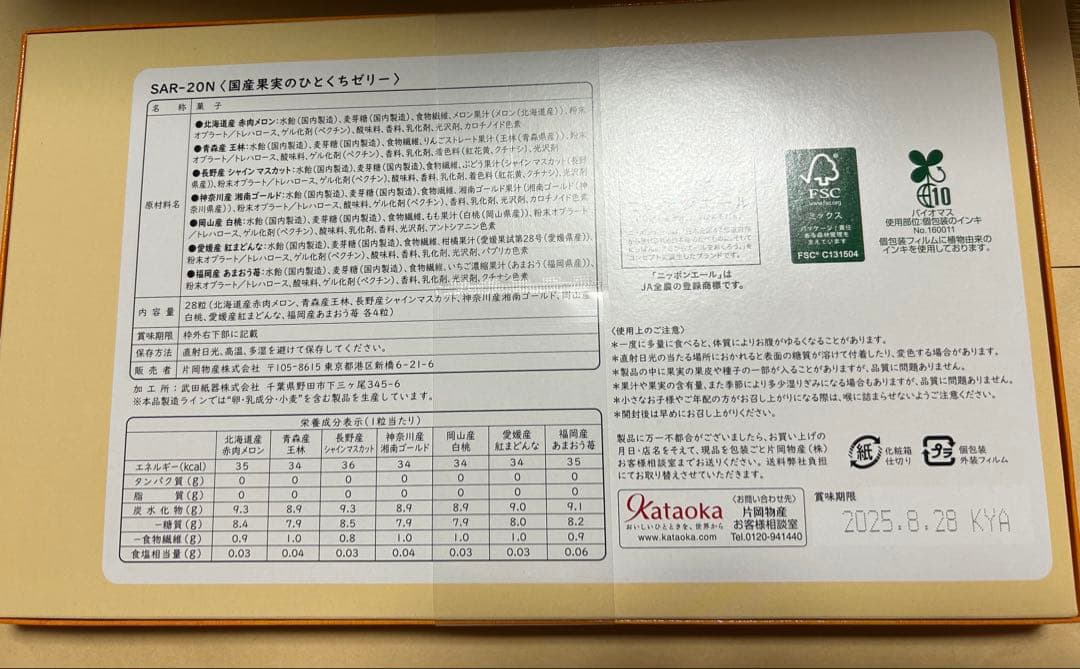 SAR-20N〈国産果実のひとくちゼリー〉
名 称 菓 子
原材料名
●北海道産 赤肉メロン:水飴(国内製造)、麦芽糖(国内製造)、食物繊維、メロン果汁(メロン(北海道産))、粉末
オブラート/トレハロース、ゲル化剤(ペクチン)、酸味料、香料、乳化剤、光沢剤、カロチノイド色素
●青森産 王林:水飴(国内製造)、麦芽糖(国内製造)、食物繊維、りんごストレート果汁(王林(青森県産))、粉末
オブラート/トレハロース、酸味料、ゲル化剤(ペクチン)、香料、乳化剤、着色料(紅花黄、クチナシ)、光沢剤
●長野産 シャインマスカット:水飴(国内製造)、麦芽糖(国内製造)、食物繊維、ぶどう果汁(シャインマスカット(長野
県産))、粉末オブラート/トレハロース、ゲル化剤(ペクチン)、酸味料、香料、乳化剤、着色料(紅花黄、クチナシ)、光沢剤
●神奈川産 湘南ゴールド:水飴(国内製造)、麦芽糖(国内製造)、食物繊維、湘南ゴールド果汁(湘南ゴールド(神
奈川県産))、粉末オブラート/トレハロース、ゲル化剤(ペクチン)、酸味料、香料、乳化剤、光沢剤、カロチノイド色素
●岡山産 白桃:水飴(国内製造)、麦芽糖(国内製造)、食物繊維、もも果汁(白桃(岡山県産))、粉末オブラート
/トレハロース、ゲル化剤(ペクチン)、酸味料、香料、乳化剤、光沢剤、アントシアニン色素
●愛媛産 紅まどんな:水飴(国内製造)、麦芽糖(国内製造)、食物繊維、柑橘果汁(愛媛果試第28号(愛媛県産))、
粉末オブラート/トレハロース、ゲル化剤(ペクチン)、酸味料、香料、乳化剤、光沢剤、パプリカ色素
●福岡産 あまおう苺:水飴(国内製造)、麦芽糖(国内製造)、食物繊維、いちご濃縮果汁(あまおう(福岡県産))、
粉末オブラート/トレハロース、酸味料、ゲル化剤(ペクチン)、香料、乳化剤、光沢剤、クチナシ色素
内 容 量 28粒(北海道産赤肉メロン、青森産王林、長野産シャインマスカット、神奈川産湘南ゴールド、岡山産
白桃、愛媛産紅まどんな、福岡産あまおう苺 各4粒)
賞味期限 枠外右下部に記載
保存方法 直射日光、高温、多湿を避けて保存してください。
販 売 者 片岡物産株式会社 〒105-8615 東京都港区新橋6-21-6
加 工 所:武田紙器株式会社 千葉県野田市下三ヶ尾345-6
※本品製造ラインでは“卵・乳成分・小麦”を含む製品を生産しています。
栄養成分表示(1粒当たり)
北海道産 赤肉メロン 青森産 王林 長野産 シャインマスカット 神奈川産 湘南ゴールド 岡山産 白桃 愛媛産 紅まどんな 福岡産 あまおう苺
エネルギー(kcal) 35 34 36 34 34 34 35
タンパク質(g) 0 0 0 0 0 0 0
脂 質(g) 0 0 0 0 0 0 0
炭水化物(g) 9.3 8.9 9.3 8.9 8.9 9.0 9.1
-糖質(g) 8.4 7.9 8.5 7.9 7.9 8.0 8.2
-食物繊維(g) 0.9 1.0 0.8 1.0 1.0 1.0 0.9
食塩相当量(g) 0.03 0.04 0.03 0.04 0.03 0.03 0.06
コンセプトに誕生したブランドです。
「ニッポンエール」は
JA全農の登録商標です。
FSC
www.fsc.org
ミックス
パッケージ|責任
ある森林管理を
支えています
FSC® C131504
10
バイオマス
使用部位:個包装のインキ
No.160011
個包装フィルムに植物由来の
インキを使用しております。
〈使用上のご注意〉
*一度に多量に食べると、体質によりお腹がゆるくなることがあります。
*直射日光の当たる場所におかれると表面の糖質が溶けて付着したり、変色する場合があります。
*製品の中に果実の果皮や種子の一部が入ることがありますが、品質に問題ありません。
*果汁や果実の含有量、また季節により多少湿りぎみになる場合もありますが、品質に問題ありません。
*小さなお子様やご年配の方がお召し上がりになる際は、喉に詰まらせないようご注意ください。
*開封後は早めにお召し上がりください。
製品に万一不都合がございましたら、お買い上げの
月日・店名をそえて、現品を包装ごと片岡物産(株)
お客様相談室までお送りください。送料弊社負担
にてお取り替えさせていただきます。
紙 化粧箱
仕切り
プラ 個包装
外装フィルム
Kataoka
おいしいひとときを、世界から
www.kataoka.com
〈お問い合わせ先〉
片岡物産
お客様相談室
Tel.0120-941440
賞味期限
2025.8.28 KYA